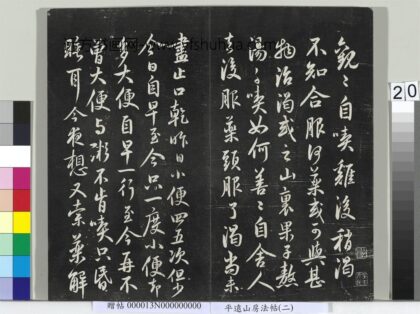 觀〻自喫雞後稍渴
不知合服何藥或可與甚
物治渴或之山裏果子熬
湯〻喫如何善〻自舍人
去後服藥頭服了渴尚未
盡止口乾昨日小便四五次但少
今日自早至今只一度小便却
多大便自早一行至今再不
曾大便与粥不肯喫只昏
睡耳今夜想又索藥解
贈帖 000013N000000000 平遠山房法帖(二)